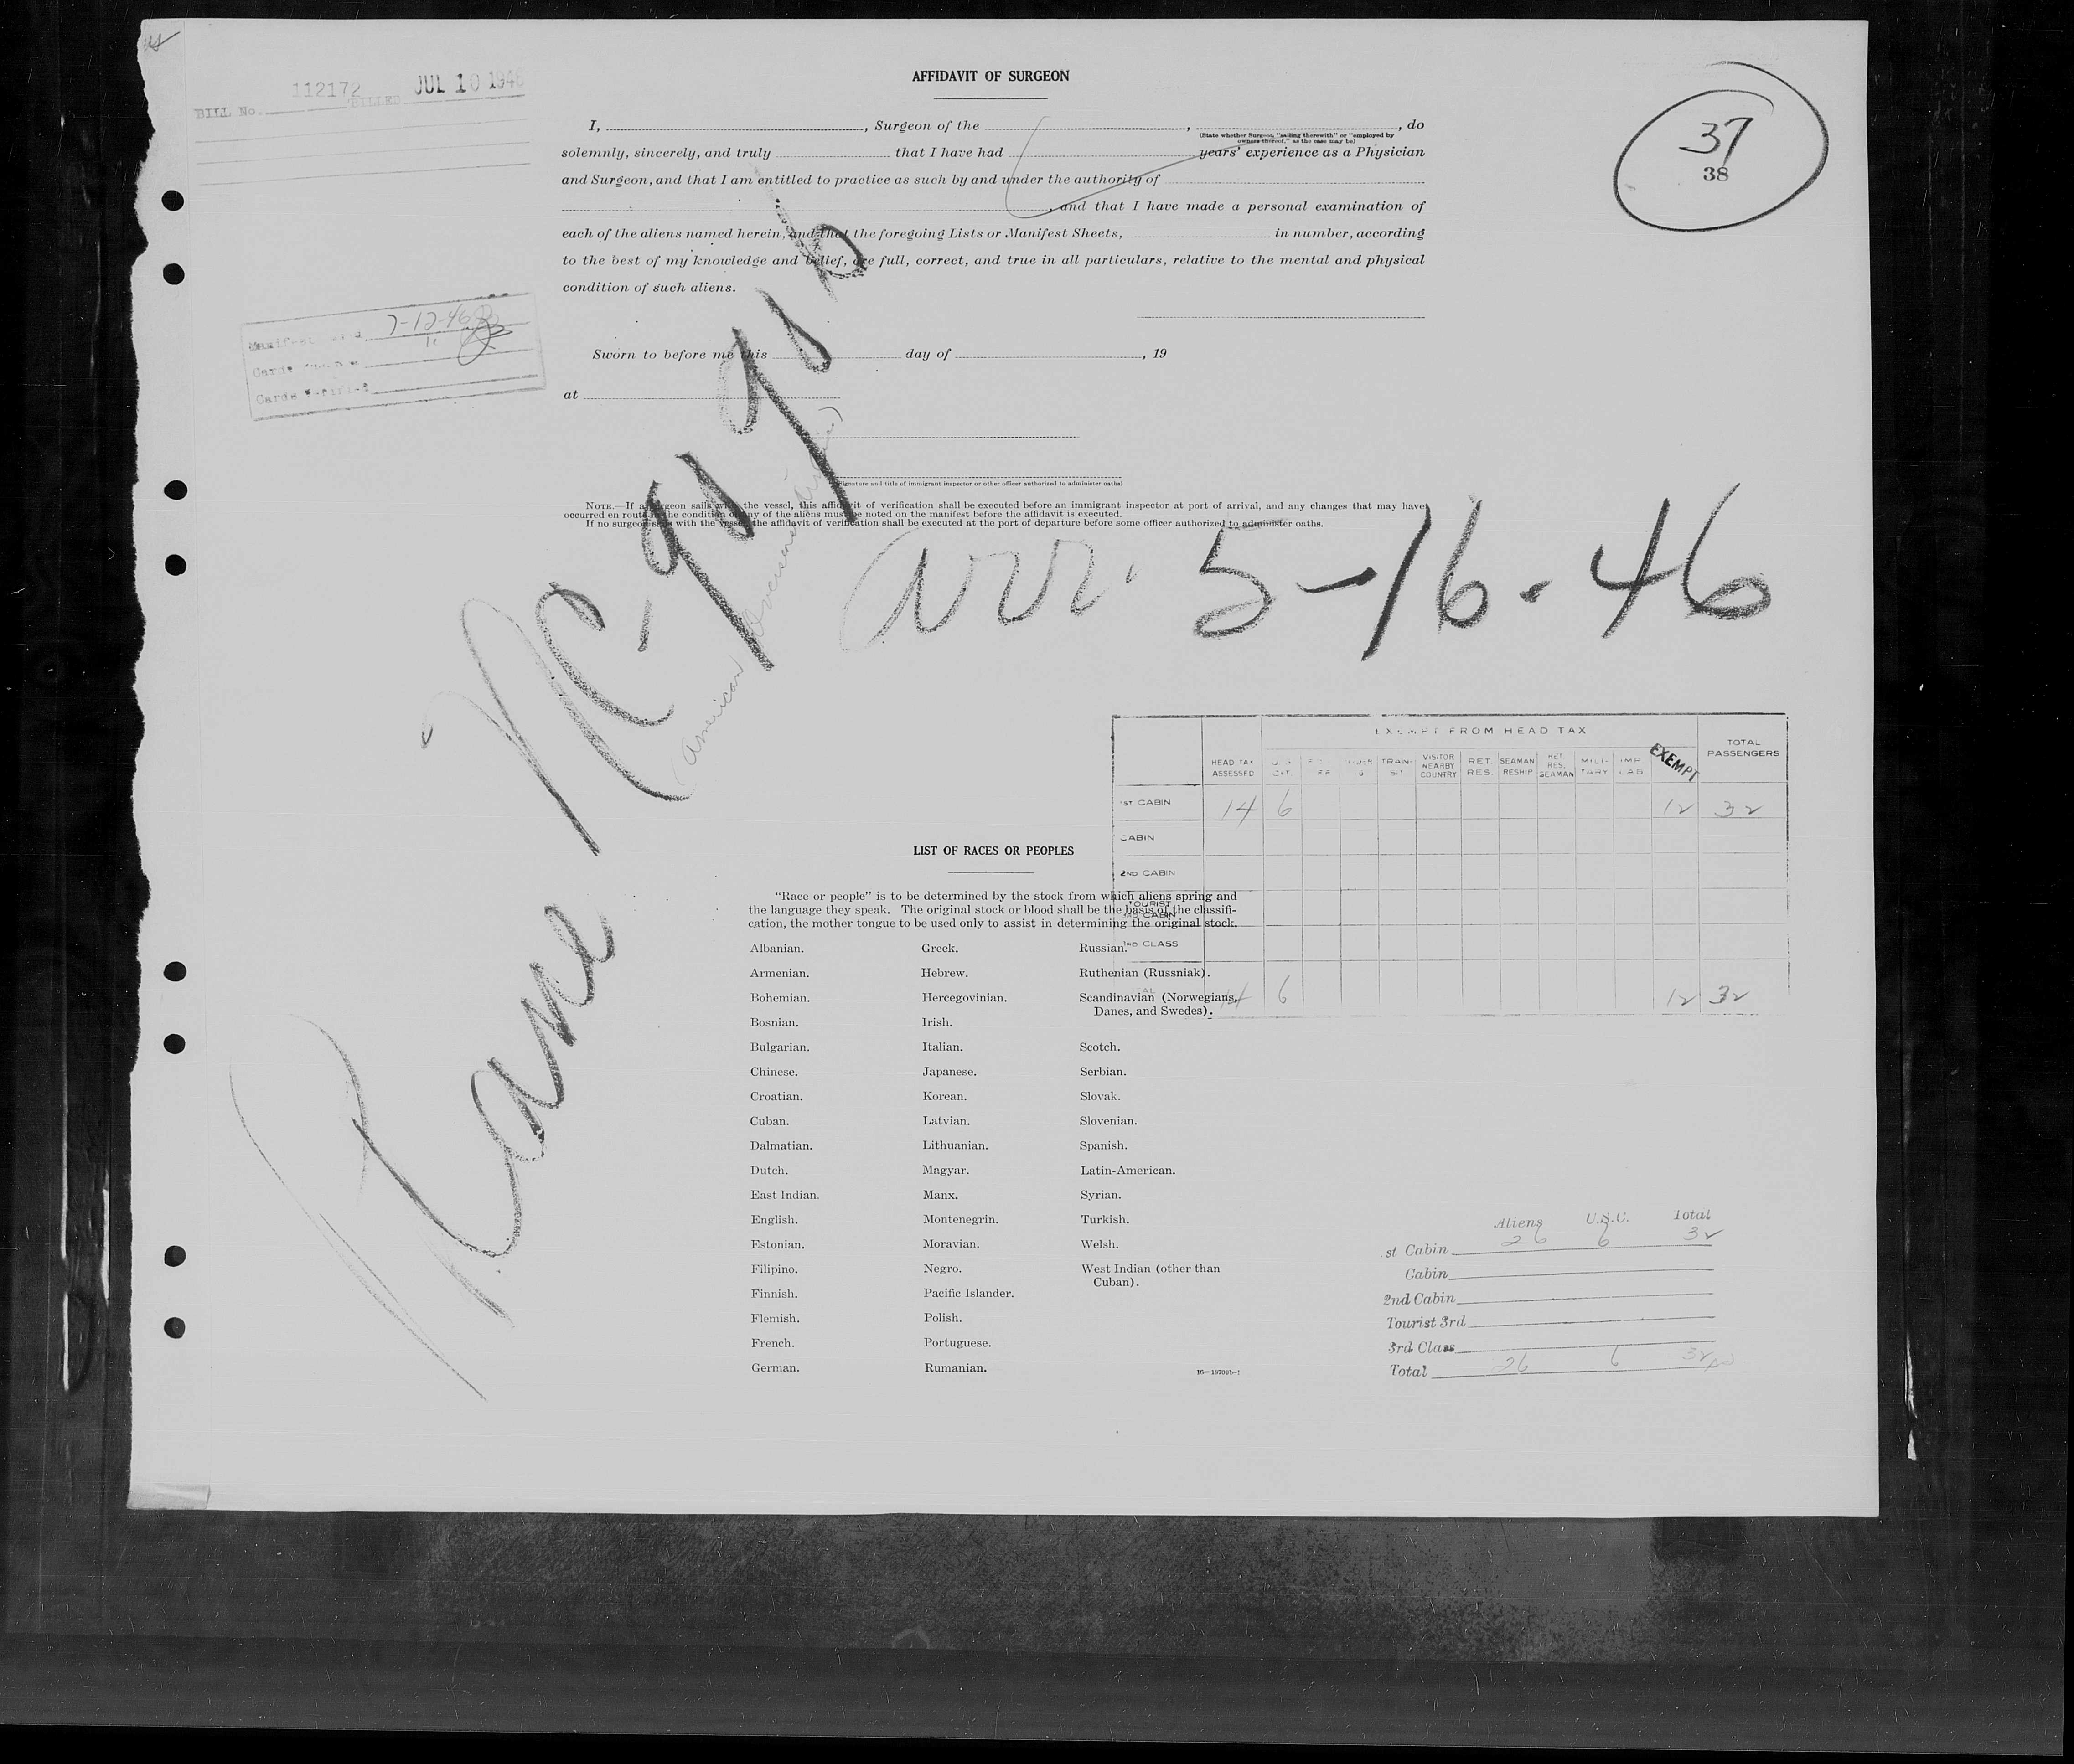 112172 JUL 10 1946
BILL No. BILLED
37
38
AFFIDAVIT OF SURGEON
I, , Surgeon of the , , do
(State whether Surgeon, "sailing therewith" or "employed by
owners thereof," as the case may be)
solemnly, sincerely, and truly that I have had years' experience as a Physician
and Surgeon, and that I am entitled to practice as such by and under the authority of
, and that I have made a personal examination of
each of the aliens named herein, and that the foregoing Lists or Manifest Sheets, in number, according
to the best of my knowledge and belief, are full, correct, and true in all particulars, relative to the mental and physical
condition of such aliens.
7-12-46
Manifest
Cards
Cards Verified
Sworn to before me this day of , 19
at
(Signature and title of immigrant inspector or other officer authorized to administer oaths)
NOTE.—If a surgeon sails with the vessel, this affidavit of verification shall be executed before an immigrant inspector at port of arrival, and any changes that may have
occurred en route in the condition of any of the aliens must be noted on the manifest before the affidavit is executed.
If no surgeon sails with the vessel, the affidavit of verification shall be executed at the port of departure before some officer authorized to administer oaths.
Plane NC-90906
(American Overseas
arr. 5-16-46
EXEMPT FROM HEAD TAX
HEAD TAX ASSESSED U.S. CIT. UNDER TRANSIT VISITOR NEARBY COUNTRY RET. RES. SEAMAN RESHIP RET. RES. SEAMAN MILITARY IMP LAB EXEMPT TOTAL PASSENGERS
1ST CABIN 14 6 12 32
CABIN
2ND CABIN
TOURIST
3RD CABIN
3RD CLASS
TOTAL 14 6 12 32
LIST OF RACES OR PEOPLES
"Race or people" is to be determined by the stock from which aliens spring and
the language they speak. The original stock or blood shall be the basis of the classifi-
cation, the mother tongue to be used only to assist in determining the original stock.
Albanian. Greek. Russian.
Armenian. Hebrew. Ruthenian (Russniak).
Bohemian. Hercegovinian. Scandinavian (Norwegians,
Danes, and Swedes).
Bosnian. Irish.
Bulgarian. Italian. Scotch.
Chinese. Japanese. Serbian.
Croatian. Korean. Slovak.
Cuban. Latvian. Slovenian.
Dalmatian. Lithuanian. Spanish.
Dutch. Magyar. Latin-American.
East Indian. Manx. Syrian.
English. Montenegrin. Turkish.
Estonian. Moravian. Welsh.
Filipino. Negro. West Indian (other than
Cuban).
Finnish. Pacific Islander.
Flemish. Polish.
French. Portuguese.
German. Rumanian.
Aliens U.S.C. Total
st Cabin 26 6 32
Cabin
2nd Cabin
Tourist 3rd
3rd Class
Total 26 6 32